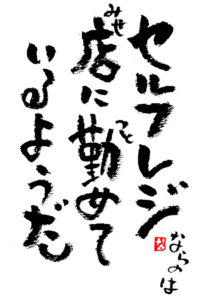 セルフレジ
店に勤めて
いるようだ
みせ
つと
ならのは